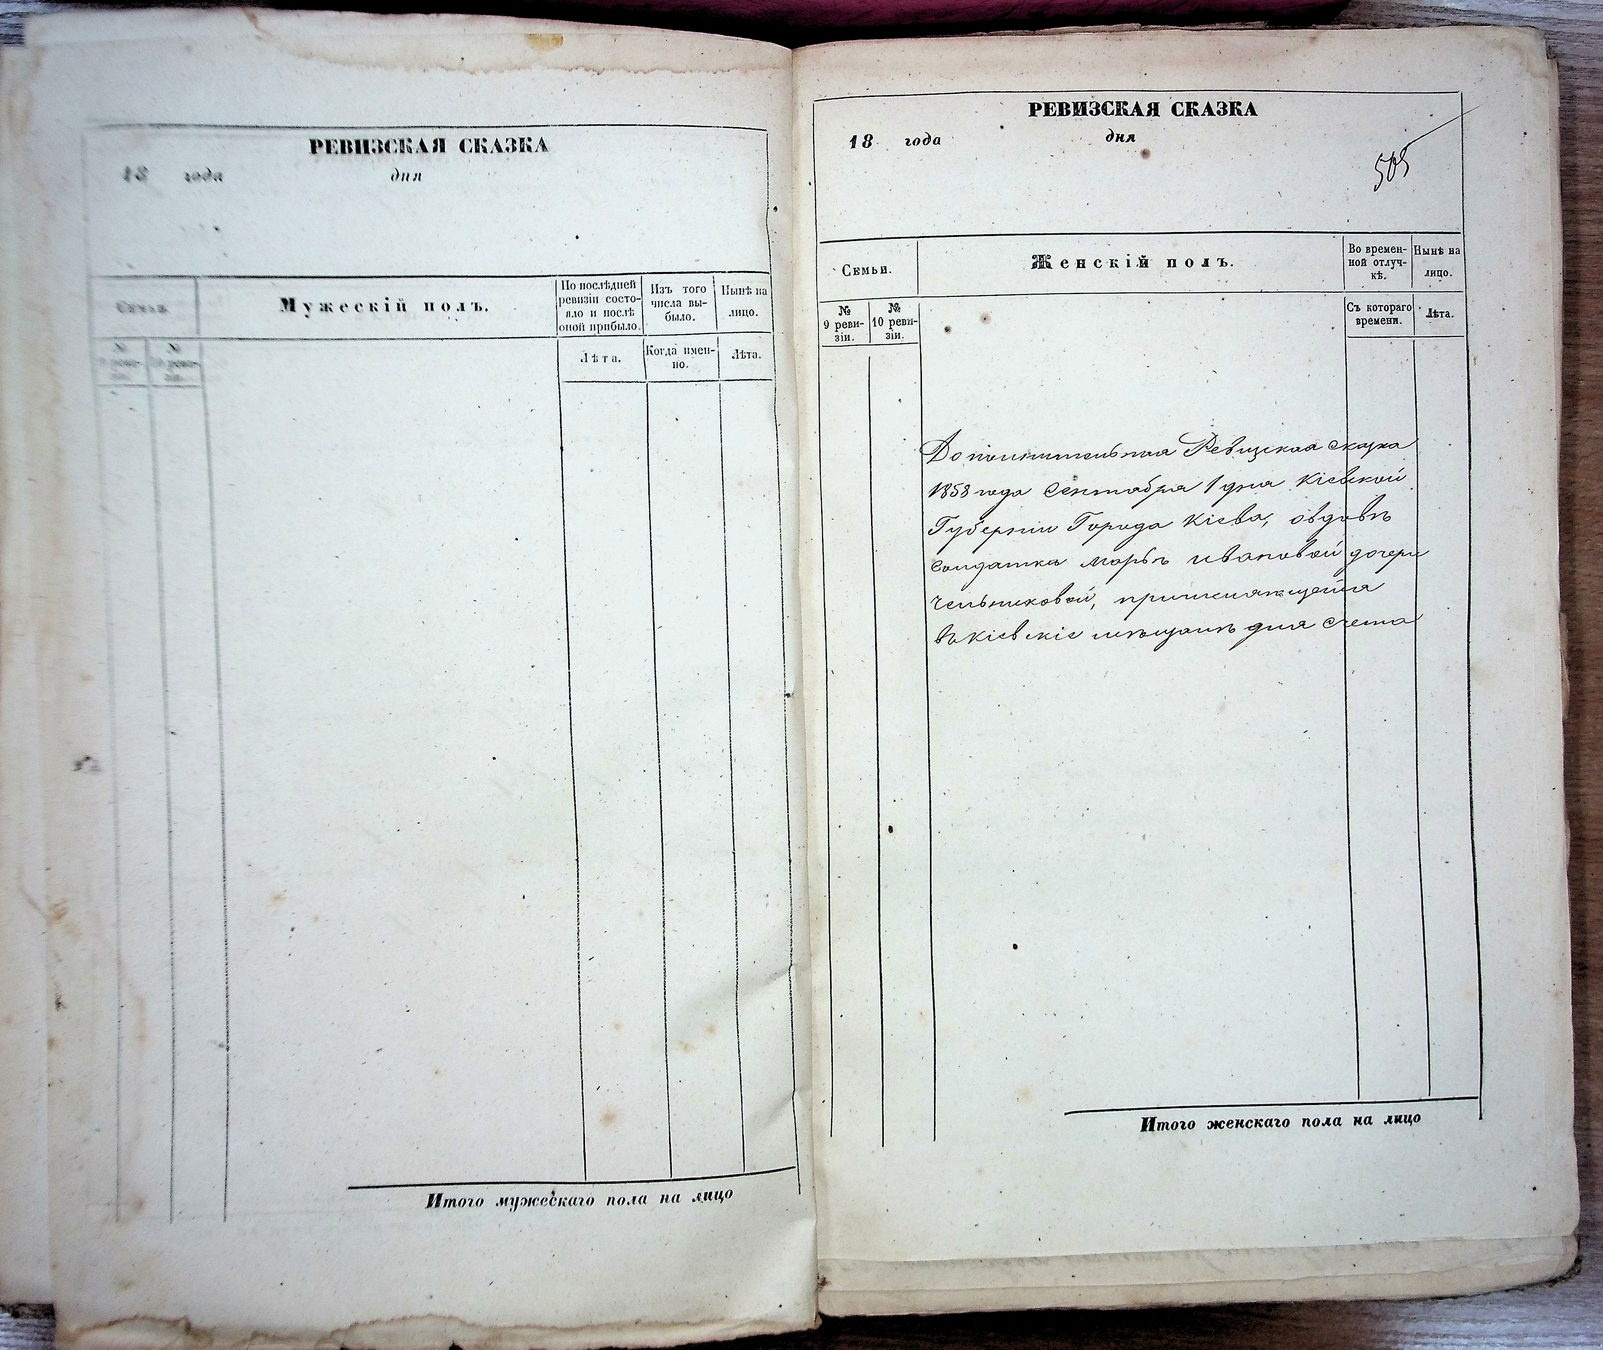 РЕВИЗСКАЯ СКАЗКА
18 года дня
Семьи.
Мужескій полъ.
По послѣдней
ревизіи состо-
яло и послѣ
оной прибыло.
Изъ того
числа вы-
было.
Нынѣ на
лицо.
№
9 реви-
зіи.
№
10 реви-
зіи.
Лѣта.
Когда имен-
но.
Лѣта.
Итого мужескаго пола на лицо
РЕВИЗСКАЯ СКАЗКА
18 года дня
505
Семьи.
Женскій полъ.
Во времен-
ной отлуч-
кѣ.
Нынѣ на
лицо.
№
9 реви-
зіи.
№
10 реви-
зіи.
Съ котораго
времени.
Лѣта.
Дополнительная Ревизская сказка
1858 года Сентября 1 дня Кіевской
Губерніи Города Кіева, о вдовѣ
солдатка Марьѣ Ивановой дочери
, причисляющейся
въ Кіевскіе мѣщанѣ для счета
Итого женскаго пола на лицо